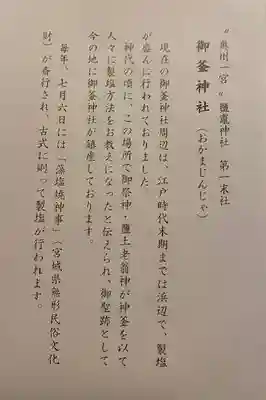 〝奥州一宮〟鹽竈神社 第一末社
御釜神社（おかまじんじゃ）
現在の御釜神社周辺は、江戸時代末期までは浜辺で、製塩
が盛んに行われておりました
神代の頃に、この場所で御祭神・鹽土老翁神が神釜を以て
人々に製塩方法をお教えになったと伝えられ、御聖跡として
今の地に御釜神社が鎮座しております。
毎年、七月六日には「藻塩焼神事」（宮城県無形民俗文化
財）が斎行され、古式に則って製塩が行われます。